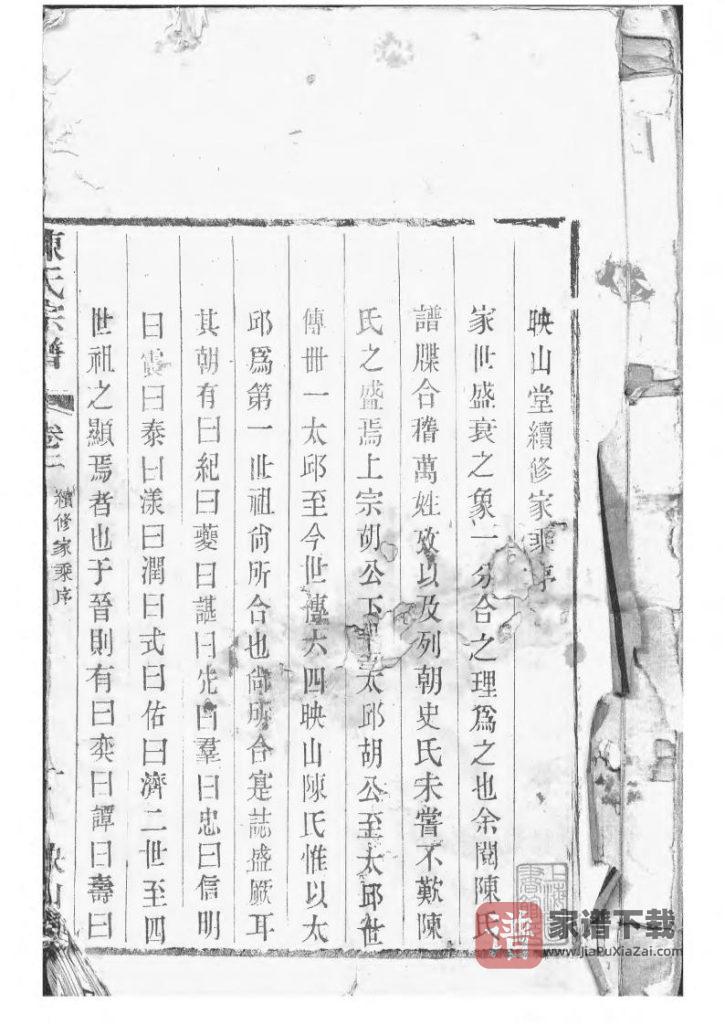 映山堂續修家乘序
家世盛衰之象一分合之理爲之也余閱陳氏
譜牒合稽萬姓攷以及列朝史氏未嘗不歎陳
氏之盛焉上宗胡公下太邱胡公至太邱世
傳卌一太邱至今世傳六四映山陳氏惟以太
邱爲第一世祖尙所合也尙所合寔誌盛厥耳
其朝有曰紀曰夔曰諶曰先曰羣曰忠曰信明
曰霞曰泰曰漾曰潤曰式曰佑曰濟二世至四
世祖之顯焉者也于晉則有曰奕曰譚曰壽曰
陳氏宗譜
卷二
續修家乘序
映山
上海
家谱下载
www.JiaPuXiaZai.com